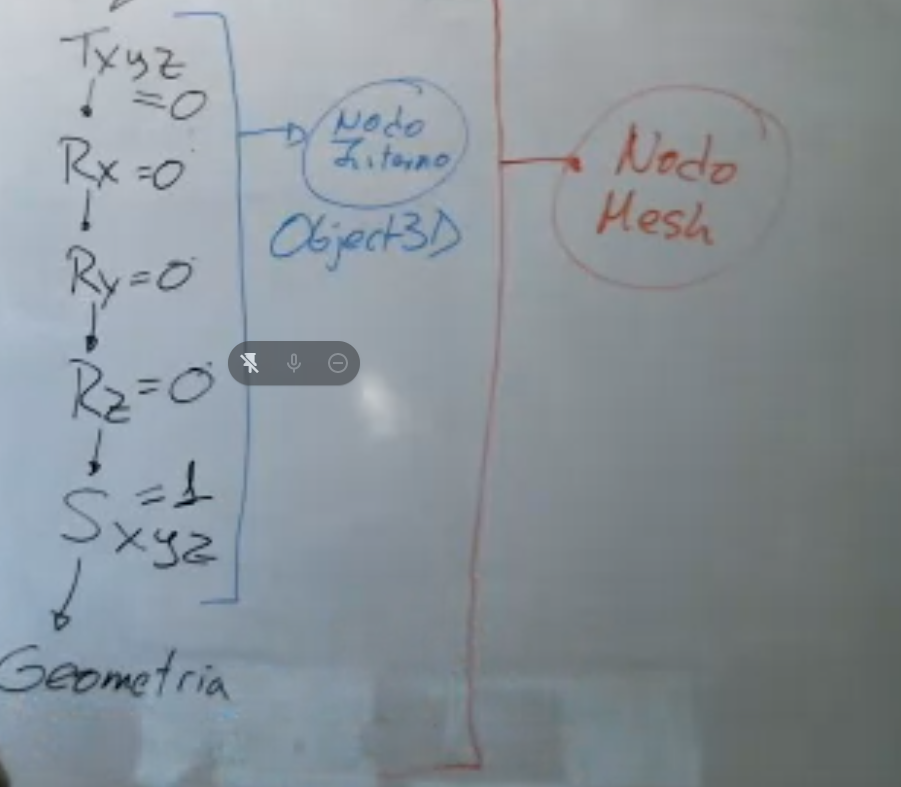 Txyz
=0
Rx=0
Ry=0
Rz=0
S=1
xyz
Geometria
Nodo
Interno
Object3D
Nodo
Mesh